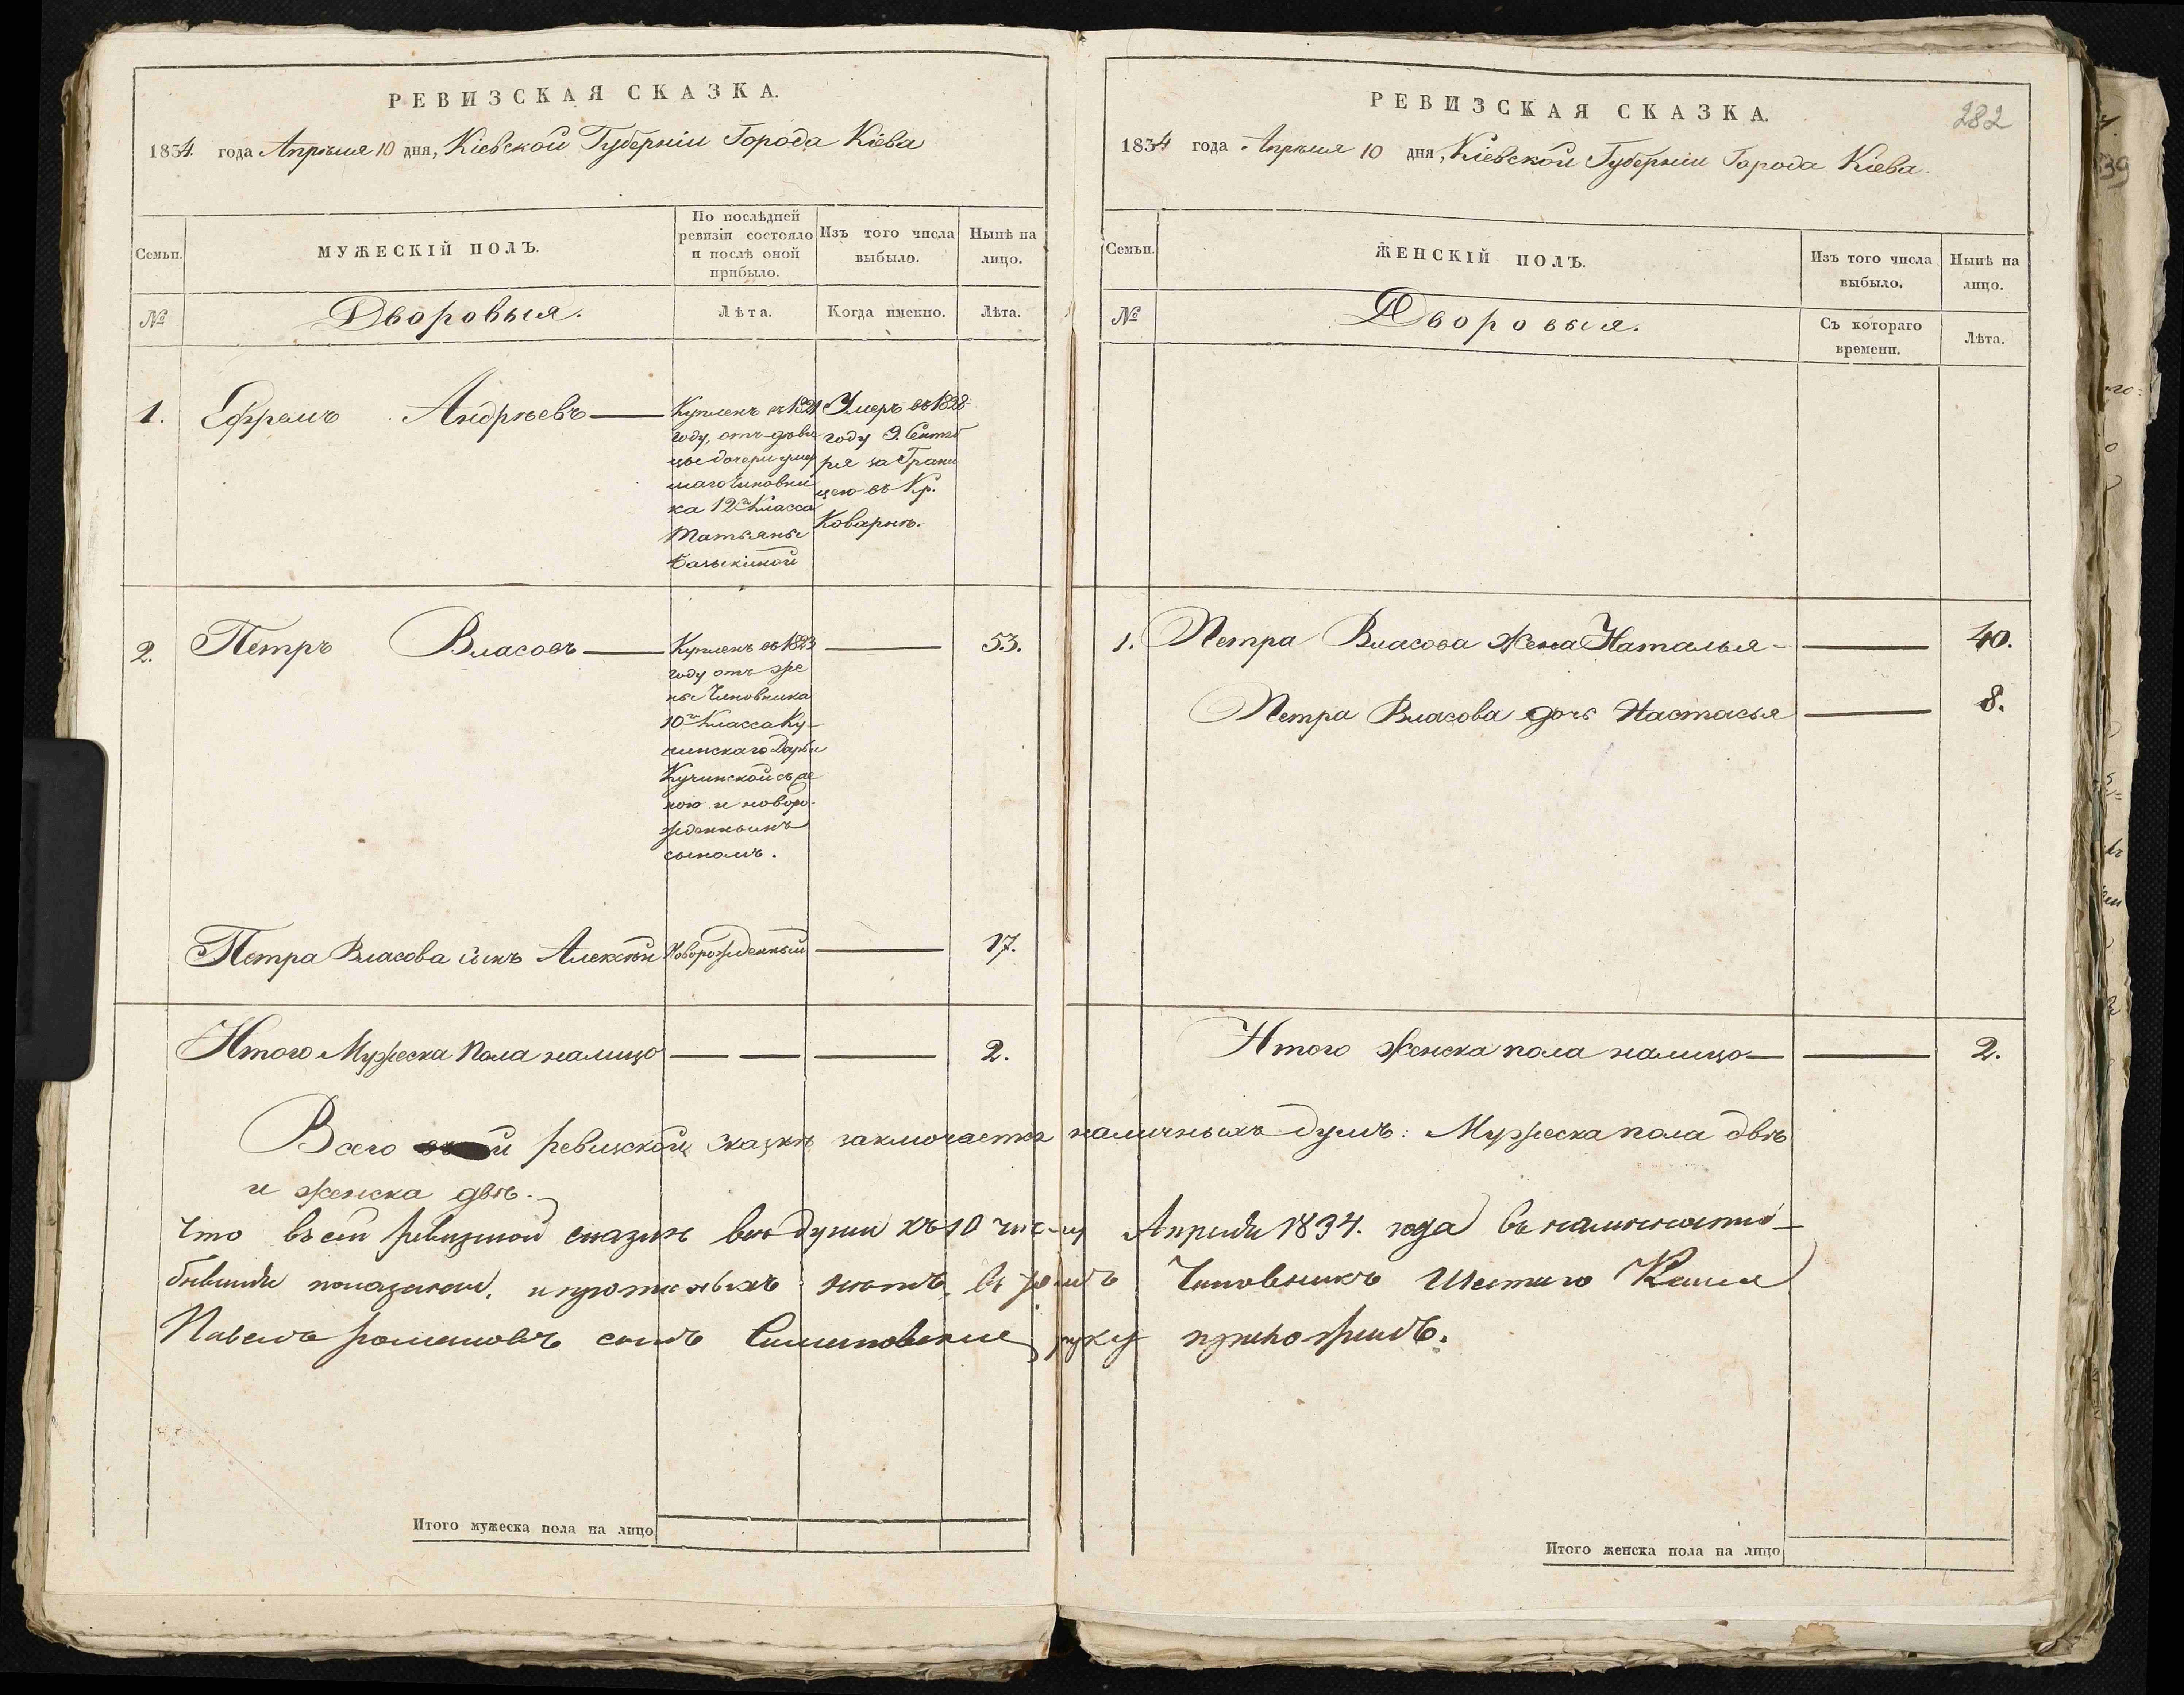 РЕВИЗСКАЯ СКАЗКА.
1834 года Апрѣля 10 дня, Кіевской Губерніи Города Кіева
Семьи.
МУЖЕСКІЙ ПОЛЪ.
По послѣдней
ревизіи состояло
и послѣ оной
прибыло.
Изъ того числа
выбыло.
Нынѣ на
лицо.
№
Дворовыя.
Лѣта.
Когда именно.
Лѣта.
1.
Ефремъ Андрѣевъ
Купленъ въ 1821
году, отъ дѣви
цы дочери умер
шаго Чиновни
ка 12го Класса
Татьяны
Базыкиной
Умеръ въ 1828
году 9. Сентяб
ря за Грани
цею въ Кр.
Коварнѣ.
2.
Петръ Власовъ
Купленъ въ 1823
году отъ же
ны Чиновника
10го Класса Ку-
чинскаго Дарьи
Кучинской съ же
ною и новоро-
жденнымъ
сыномъ.
53.
Петра Власова сынъ Алексѣй
Новорожденный
17.
Итого Мужеска Пола налицо
2.
РЕВИЗСКАЯ СКАЗКА.
282
1834 года Апрѣля 10 дня, Кіевской Губерніи Города Кіева.
Семьи.
ЖЕНСКІЙ ПОЛЪ.
Изъ того числа
выбыло.
Нынѣ на
лицо.
№
Дворовыя.
Съ котораго
времени.
Лѣта.
1.
Петра Власова жена Наталья
40.
Петра Власова дочь Настасья
8.
Итого женска пола налицо
2.
Всего ревизской сказкѣ заключается наличныхъ душъ: Мужеска пола двѣ
и женска двѣ.
Что въ сей ревизской сказкѣ всѣ души къ 10 числу Апрѣля 1834. года въ наличности
бывшія показаны, и прописныхъ нѣтъ, въ томъ Чиновникъ Шестаго Класса
Павелъ Романовъ сынъ руку приложилъ.
Итого мужеска пола на лицо
Итого женска пола на лицо